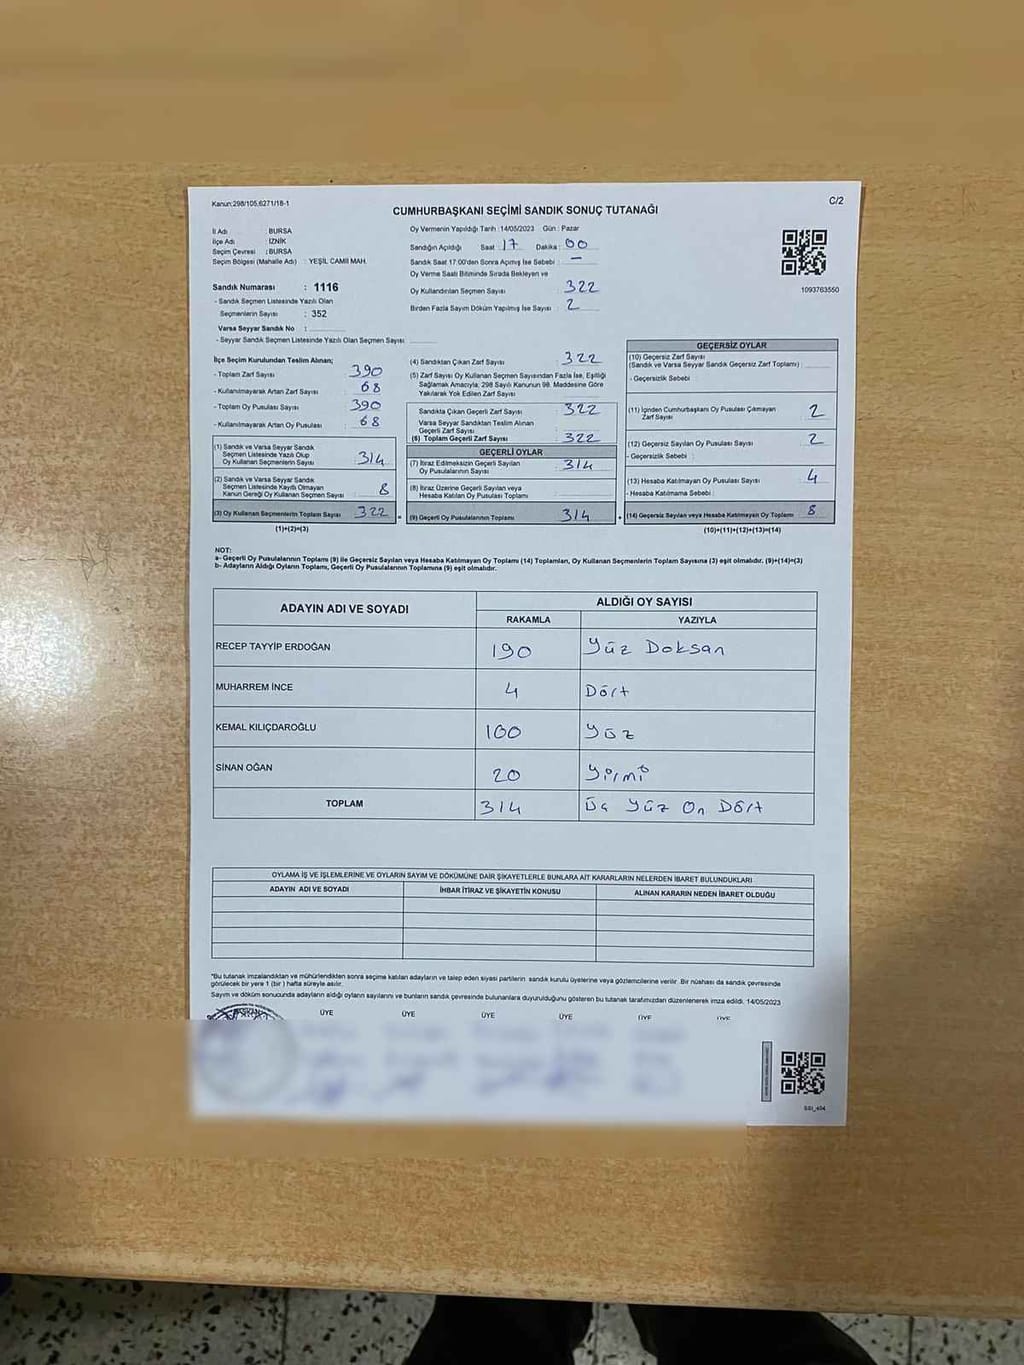 Kanun:298/105,6271/18-1
C/2
CUMHURBAŞKANI SEÇİMİ SANDIK SONUÇ TUTANAĞI
İl Adı : BURSA
İlçe Adı : İZNİK
Seçim Çevresi : BURSA
Seçim Bölgesi (Mahalle Adı) : YEŞİL CAMİİ MAH.
Sandık Numarası : 1116
- Sandık Seçmen Listesinde Yazılı Olan
Seçmenlerin Sayısı : 352
Varsa Seyyar Sandık No :
- Seyyar Sandık Seçmen Listesinde Yazılı Olan Seçmen Sayısı
Oy Vermenin Yapıldığı Tarih :14/05/2023 Gün : Pazar
Sandığın Açıldığı Saat : 17 Dakika : 00
Sandık Saat 17:00'den Sonra Açımış İse Sebebi : —
Oy Verme Saati Bitiminde Sırada Bekleyen ve
Oy Kullandırılan Seçmen Sayısı : 322
Birden Fazla Sayım Döküm Yapılmış İse Sayısı : 2
1093763550
İlçe Seçim Kurulundan Teslim Alınan;
- Toplam Zarf Sayısı : 390
- Kullanılmayarak Artan Zarf Sayısı : 68
- Toplam Oy Pusulası Sayısı : 390
- Kullanılmayarak Artan Oy Pusulası : 68
(1) Sandık ve Varsa Seyyar Sandık
Seçmen Listesinde Yazılı Olup
Oy Kullanan Seçmenlerin Sayısı : 314
(2) Sandık ve Varsa Seyyar Sandık
Seçmen Listesinde Kayıtlı Olmayan
Kanun Gereği Oy Kullanan Seçmen Sayısı : 8
(3) Oy Kullanan Seçmenlerin Toplam Sayısı : 322
(1)+(2)=(3)
(4) Sandıktan Çıkan Zarf Sayısı : 322
(5) Zarf Sayısı Oy Kullanan Seçmen Sayısından Fazla İse, Eşitliği
Sağlamak Amacıyla, 298 Sayılı Kanunun 98. Maddesine Göre
Yakılarak Yok Edilen Zarf Sayısı :
Sandıkta Çıkan Geçerli Zarf Sayısı : 322
Varsa Seyyar Sandıktan Teslim Alınan
Geçerli Zarf Sayısı :
(6) Toplam Geçerli Zarf Sayısı : 322
GEÇERLİ OYLAR
(7) İtiraz Edilmeksizin Geçerli Sayılan
Oy Pusulalarının Sayısı : 314
(8) İtiraz Üzerine Geçerli Sayılan veya
Hesaba Katılan Oy Pusulası Toplamı :
(9) Geçerli Oy Pusulalarının Toplamı : 314
GEÇERSİZ OYLAR
(10) Geçersiz Zarf Sayısı
(Sandık ve Varsa Seyyar Sandık Geçersiz Zarf Toplamı) :
- Geçersizlik Sebebi :
(11) İçinden Cumhurbaşkanı Oy Pusulası Çıkmayan
Zarf Sayısı : 2
(12) Geçersiz Sayılan Oy Pusulası Sayısı : 2
- Geçersizlik Sebebi :
(13) Hesaba Katılmayan Oy Pusulası Sayısı : 4
- Hesaba Katılmama Sebebi :
(14) Geçersiz Sayılan veya Hesaba Katılmayan Oy Toplamı : 8
(10)+(11)+(12)+(13)=(14)
NOT:
a- Geçerli Oy Pusulalarının Toplamı (9) ile Geçersiz Sayılan veya Hesaba Katılmayan Oy Toplamı (14) Toplamları, Oy Kullanan Seçmenlerin Toplam Sayısına (3) eşit olmalıdır. (9)+(14)=(3)
b- Adayların Aldığı Oyların Toplamı, Geçerli Oy Pusulalarının Toplamına (9) eşit olmalıdır.
ADAYIN ADI VE SOYADI ALDIĞI OY SAYISI
RAKAMLA YAZIYLA
RECEP TAYYİP ERDOĞAN 190 Yüz Doksan
MUHARREM İNCE 4 Dört
KEMAL KILIÇDAROĞLU 100 Yüz
SİNAN OĞAN 20 Yirmi
TOPLAM 314 Üç Yüz On Dört
OYLAMA İŞ VE İŞLEMLERİNE VE OYLARIN SAYIM VE DÖKÜMÜNE DAİR ŞİKAYETLERLE BUNLARA AİT KARARLARIN NELERDEN İBARET BULUNDUKLARI
ADAYIN ADI VE SOYADI İHBAR İTİRAZ VE ŞİKAYETİN KONUSU ALINAN KARARIN NEDEN İBARET OLDUĞU
*Bu tutanak imzalandıktan ve mühürlendikten sonra seçime katılan adayların ve talep eden siyasi partilerin sandık kurulu üyelerine veya gözlemcilerine verilir. Bir nüshası da sandık çevresinde
görülecek bir yere 1 (bir ) hafta süreyle asılır.
Sayım ve döküm sonucunda adayların aldığı oyların sayılarını ve bunların sandık çevresinde bulunanlara duyurulduğunu gösteren bu tutanak tarafımızdan düzenlenerek imza edildi. 14/05/2023
ÜYE ÜYE ÜYE ÜYE ÜYE ÜYE
SSI_404